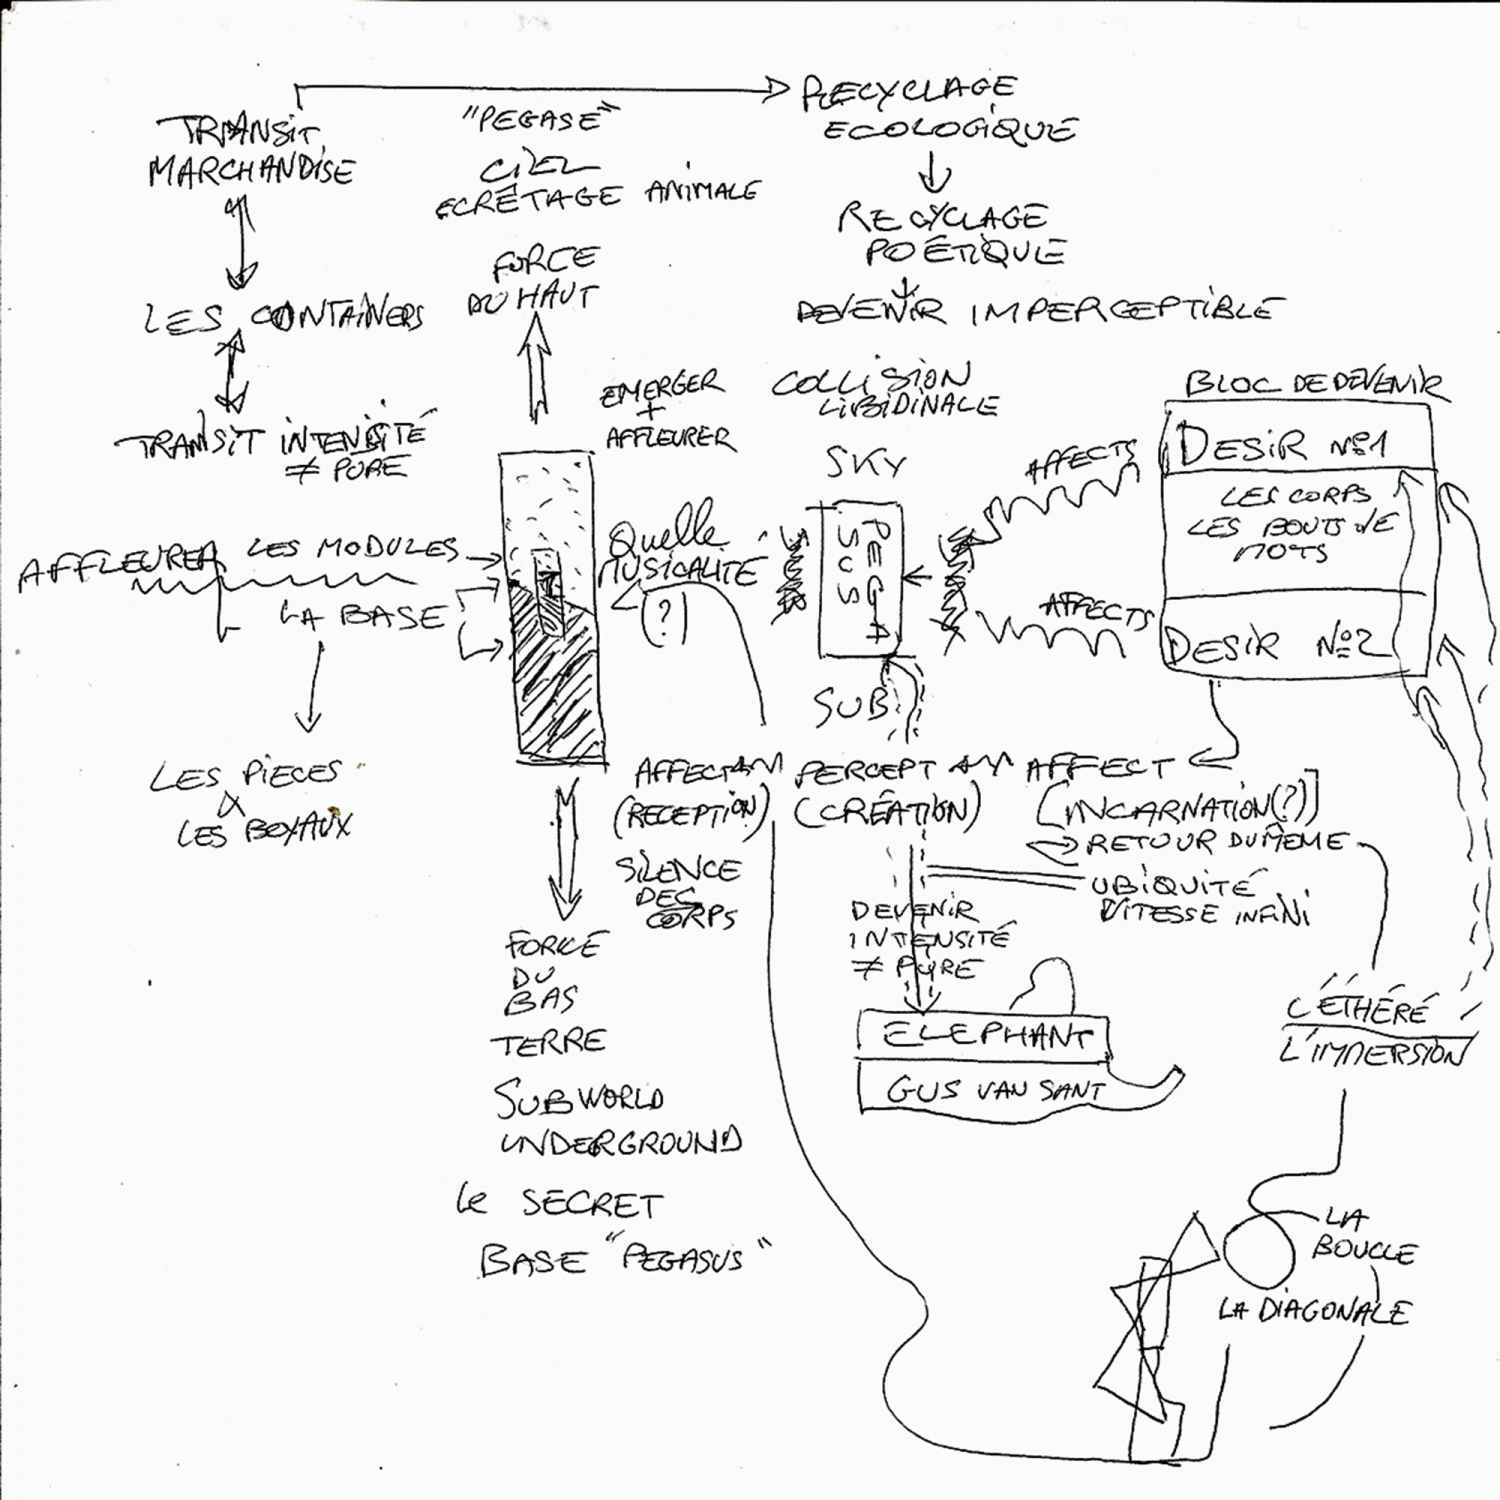 TRANSIT
MARCHANDISE
LES CONTAINERS
TRANSIT INTENSITÉ
≠ PURE
"PEGASE"
CIEL
ECRÊTAGE ANIMALE
FORCE
DU HAUT
RECYCLAGE
ECOLOGIQUE
RECYCLAGE
POÉTIQUE
DEVENIR IMPERCEPTIBLE
EMERGER
+
AFFLEURER
COLLISION
LIBIDINALE
SKY
PEGA
SUS
SUB
BLOC DE DEVENIR
DESIR Nº1
LES CORPS
LES BOUTS DE
MOTS
DESIR Nº2
AFFECTS
AFFECTS
AFFLEURER
LES MODULES
LA BASE
LES PIECES
&
LES BOYAUX
Quelle
MUSICALITÉ
(?)
AFFECT
(RECEPTION)
SILENCE
DES
CORPS
PERCEPT
(CRÉATION)
AFFECT
[INCARNATION(?)]
RETOUR DU MÊME
UBIQUITÉ
VITESSE INFINI
DEVENIR
INTENSITÉ
≠ PURE
ELEPHANT
GUS VAN SANT
FORCE
DU
BAS
TERRE
SUBWORLD
UNDERGROUND
Le SECRET
BASE "PEGASUS"
L'ÉTHÉRÉ
L'IMMERSION
LA
BOUCLE
LA DIAGONALE